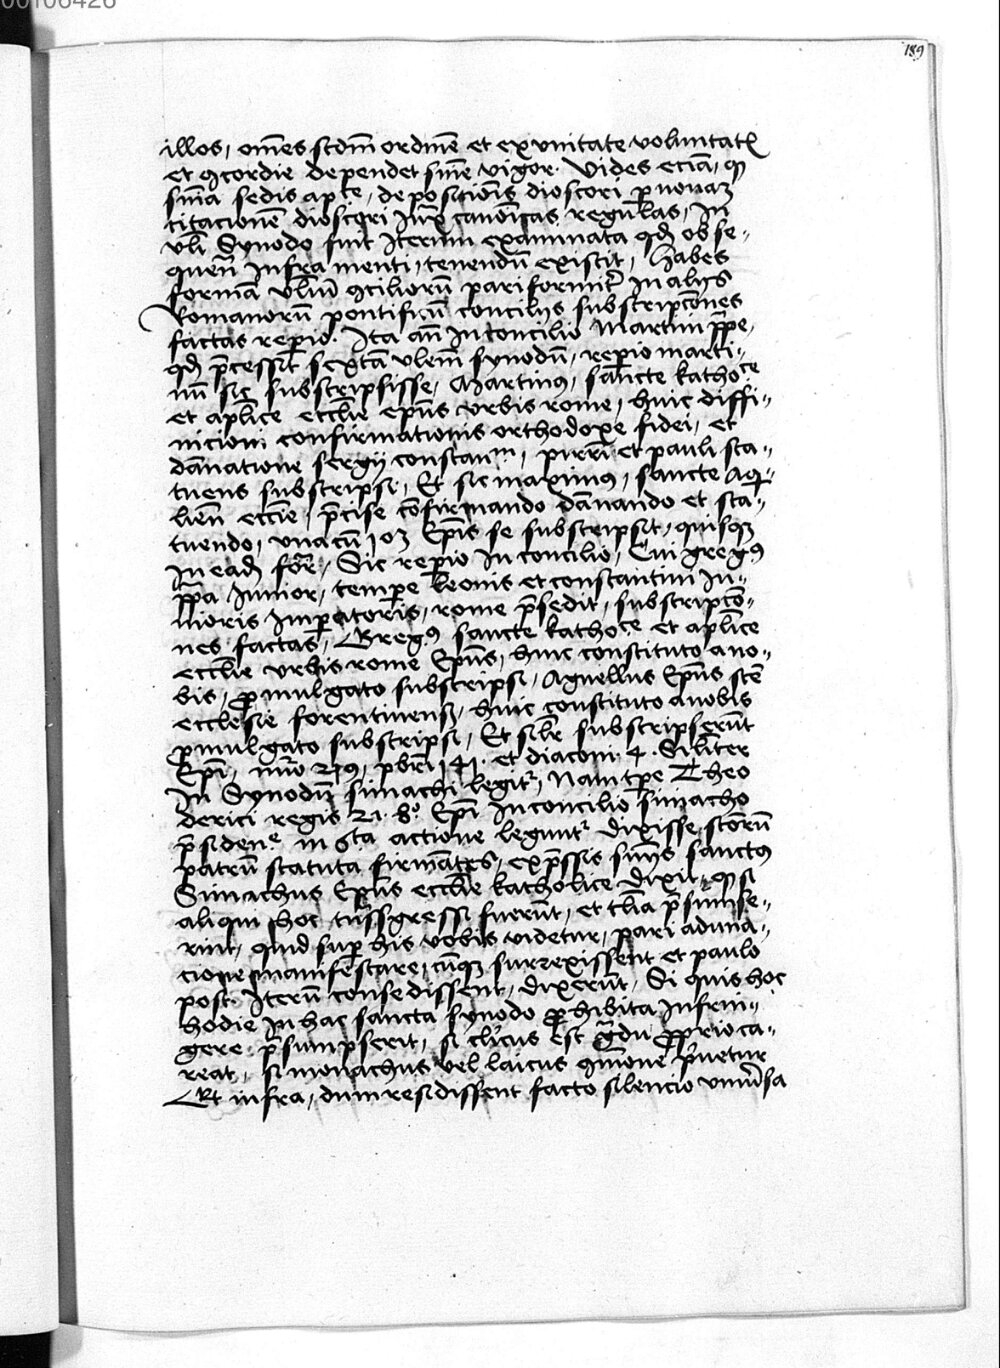 00106426
189
illos, om̄es scdm̄ ordinē et ex vnitate voluntatꝭ
et ꝯcordie dependet sn̄ie vigor. Vides eciā, ꝙ
sn̄ia sedis aplice, deposicionis dioscori ꝑ nouam
citacionē dioscori Iux̄ canonicas regulas, In
vl̄i Synodo fuit Iterum examinata qd̄ obse-
quen̄ Infra menti, tenendū existit, Habes
formā vl̄iū ꝯciliorū pariformit̄ In alijs
Romanorū pontificū concilijs subscripcōnes
factas reperio. Ita aūt In concilio Martini pape,
qd̄ p̄cessit sextā vl̄em synodū, reperio marti-
nū sic subscripsisse, Martinus, sancte kathoce
et aplice ecclīe epūs vrbis rome, huic diffi-
nicioni confirmationis orthodoxe fidei, et
dānatione sergij constan, pirri et pauli sta-
tuens subscripsi, Et sic maximus, sancte Aqi-
lien̄ ecclīe, p̄cise cōfirmando dānando et sta-
tuendo, vna cū 103 Epīs se subscripsit, quisqꝫ
In ead̄ for̄, Sic reperio In concilio, Cui gregꝰ
papa Iunior, tempore leonis et constantini Iu-
nioris Imperatoris, rome p̄sedit, subscripcō-
nes factas, Gregꝰ sancte kathoce et aplice
ecclīe vrbis rome Epūs, huic constituto a no-
bis, ꝓmulgato subscripsi, Agnellus Epūs scē
ecclesie forentinens, huic constituto a nobis
ꝓmulgato subscripsi, Et silr̄ subscripserūt
Epī, nūo 219, pbrī 141. et diaconi 4. Silr̄iter
In Synodū simachi legitr, Nam tꝑe Theo
derici regis 21.8º. Epī In concilio simacho
p̄siden̄e in 6ta actione leguntr dixisse, scōrū
patrū statuta firmātes, exp̄ssis sn̄ijs sanctus
Simachus Epūs ecclīe katholice dixit, ꝙ si
aliqui hoc t̄nsgressi fuerūt, et
rint, quid suꝑ his vobis videtur, pari aduna-
cione manifestare, cūqꝫ surrexissent et paulo
post Iterū consedissent, dixerūt, Si quis hoc
hodie In hac sancta synodo ꝓhibita Infrin-
gere p̄sumpserit, si cl̄icus est gradu ꝓprio ca-
reat, si monachus vel laicus ꝯmōne p̄uetur
Et infra, dum resedissent facto silencio vniūsa